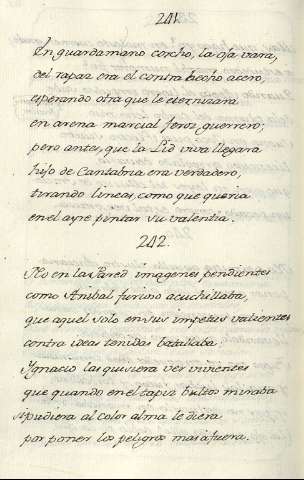 241.
En guardamano corcho, la oja vara,
del rapaz era el contra hecho acero,
esperando otra que le eternizara
en arena marcial feroz guerrero;
pero antes, que la Lid viva llegara
hijo de Cantabria era verdadero,
tirando lineas, como que queria
en el ayre pintar su valentia.
242.
No en la Pared imagenes pendientes
como Anibal furioso acuchillaba,
que aquel solo en sus impetus valientes
contra ideas tenidas batallaba:
Ygnacio las quisiera ver vivientes
que quando en el tapiz bultos miraba
si pudiera al color alma le diera
por poner los peligros mas afuera.